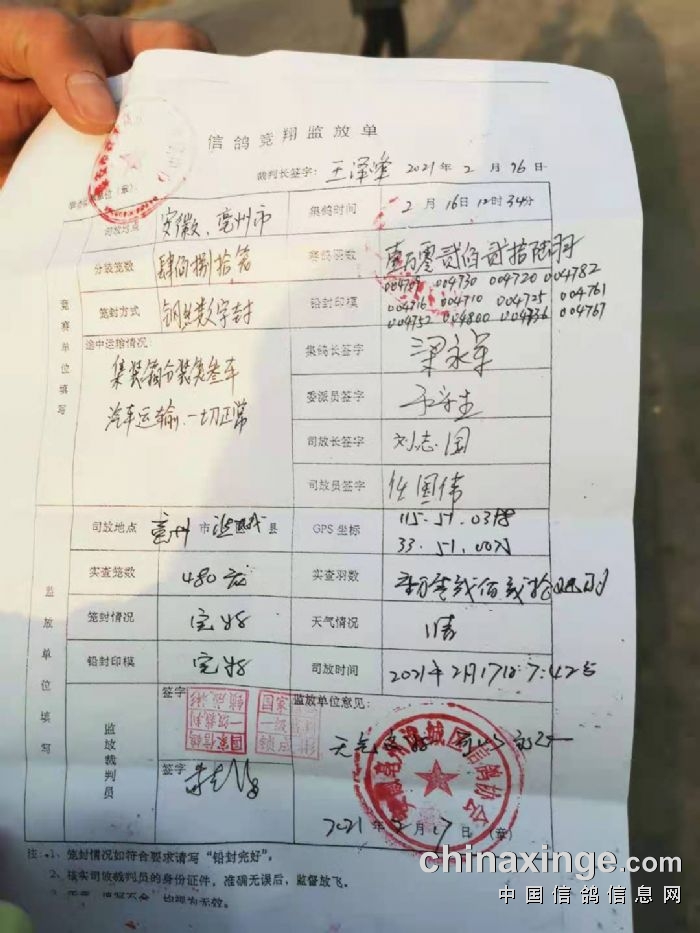 信鸽竞翔监放单
裁判长签字： 2021年2月16日
司放地点 安徽、亳州市 集鸽时间 2月16日12时34分
分装笼数 肆佰捌拾笼 羽数 壹万零贰佰贰拾陆羽
笼封方式 钢丝数字封 铅封印模 004730 004720 004782
004716 004710 004725 004761
004752 004800 004736 004767
竞赛单位填写
途中运输情况：
集装箱分装叁车
汽车运输、一切正常
集鸽长签字 梁永军
委派员签字
司放长签字 刘志国
司放员签字 任国伟
司放地点 亳州市 县 GPS坐标 115.51.
33.51.
实查笼数 480 实查羽数
笼封情况 完好 天气情况 晴
铅封印模 完好 司放时间 2021年2月17日7:42
监放单位填写
监放裁判员
签字 监放单位意见：
国家信鸽
一级裁判
签字
2021年2月17日（章）
注：1、笼封情况如符合要求请写“铅封完好”。
2、核实司放裁判员的身份证件，准确无误后，监督放飞。
chinaxinge.com
中国信鸽信息网